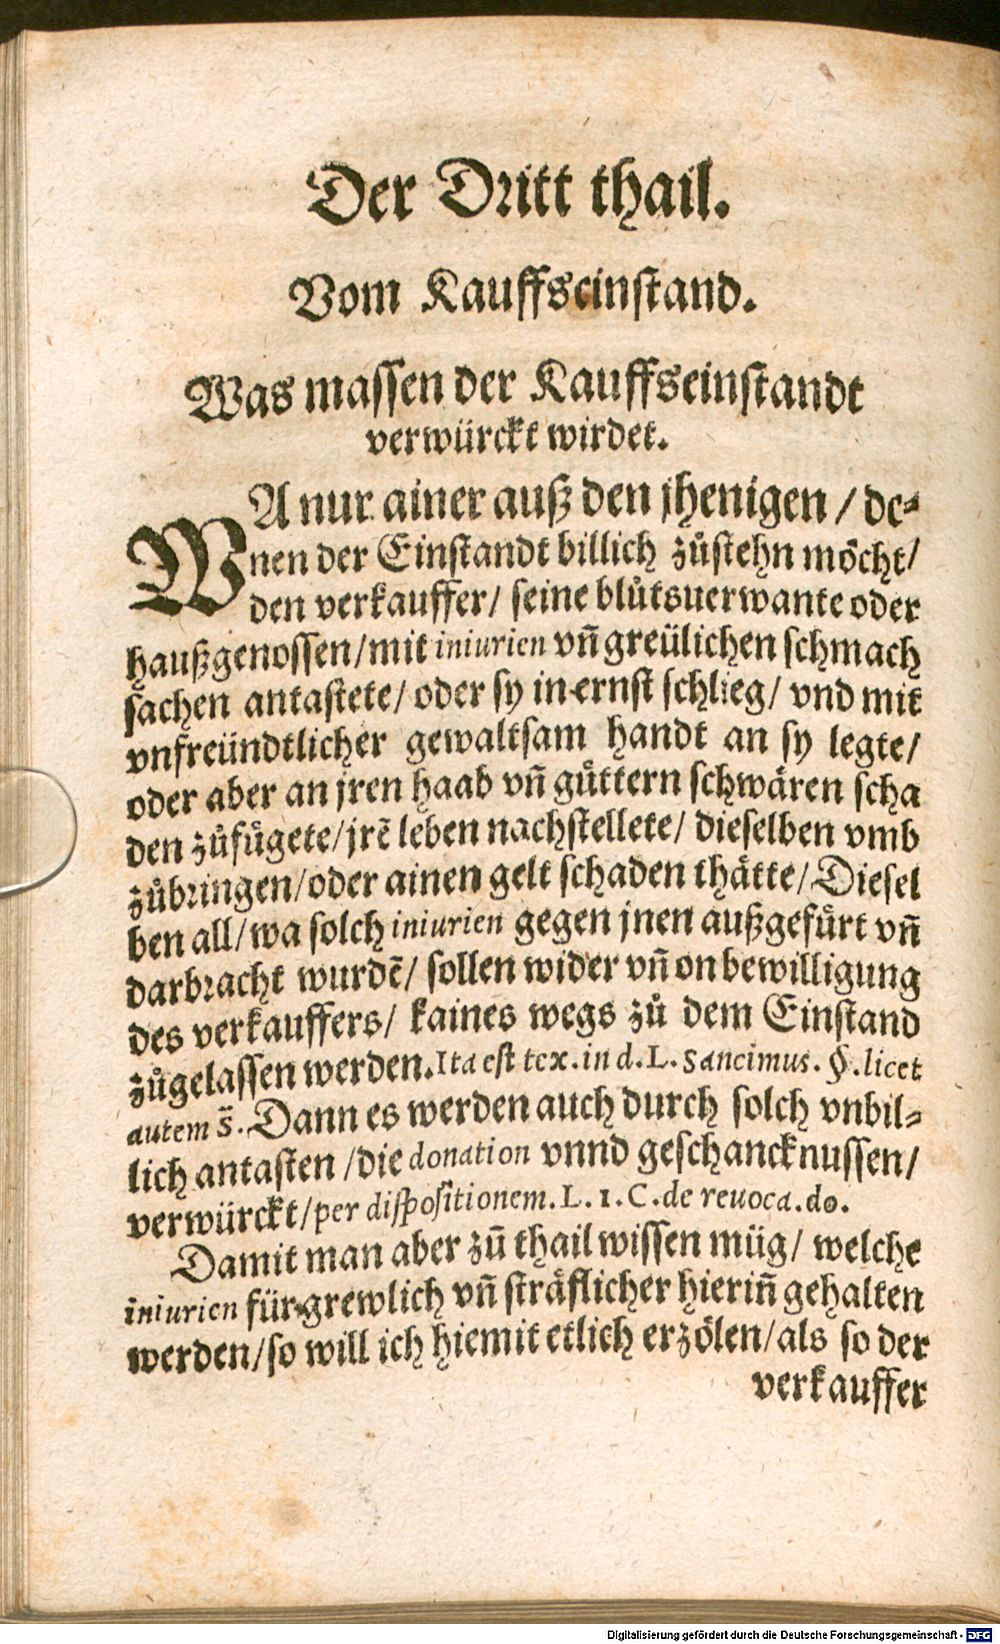 Der Dritt thail.
Vom Kauffseinstand.
Was massen der Kauffseinstandt
verwürckt wirdet.
WA nur ainer auß den jhenigen / de-
nen der Einstandt billich zůstehn möcht/
den verkauffer/ seine blůtsuerwante oder
haußgenossen/mit iniurien vñ greülichen schmach
sachen antastete/ oder sy in ernst schlieg/ vnd mit
vnfreündtlicher gewaltsam handt an sy legte/
oder aber an jren haab vñ gůttern schwären scha
den zůfůgete/jrē leben nachstellete/ dieselben vmb
zůbringen/oder ainen gelt schaden thätte/Diesel
ben all/wa solch iniurien gegen jnen außgefůrt vñ
darbracht wurdē/ sollen wider vñ on bewilligung
des verkauffers/ kaines wegs zů dem Einstand
zůgelassen werden.Ita est tex.in d.L.Sancimus.§.licet
autem s̄.Dann es werden auch durch solch vnbil-
lich antasten /die donation vnnd geschancknussen/
verwürckt/per dispositionem.L.1.C.de reuoca.do.
Damit man aber zū thail wissen müg/ welche
iniurien für grewlich vñ sträflicher hieriñ gehalten
werden/so will ich hiemit etlich erzölen/als so der
verkauffer
Digitalisierung gefördert durch die Deutsche Forschungsgemeinschaft - DFG